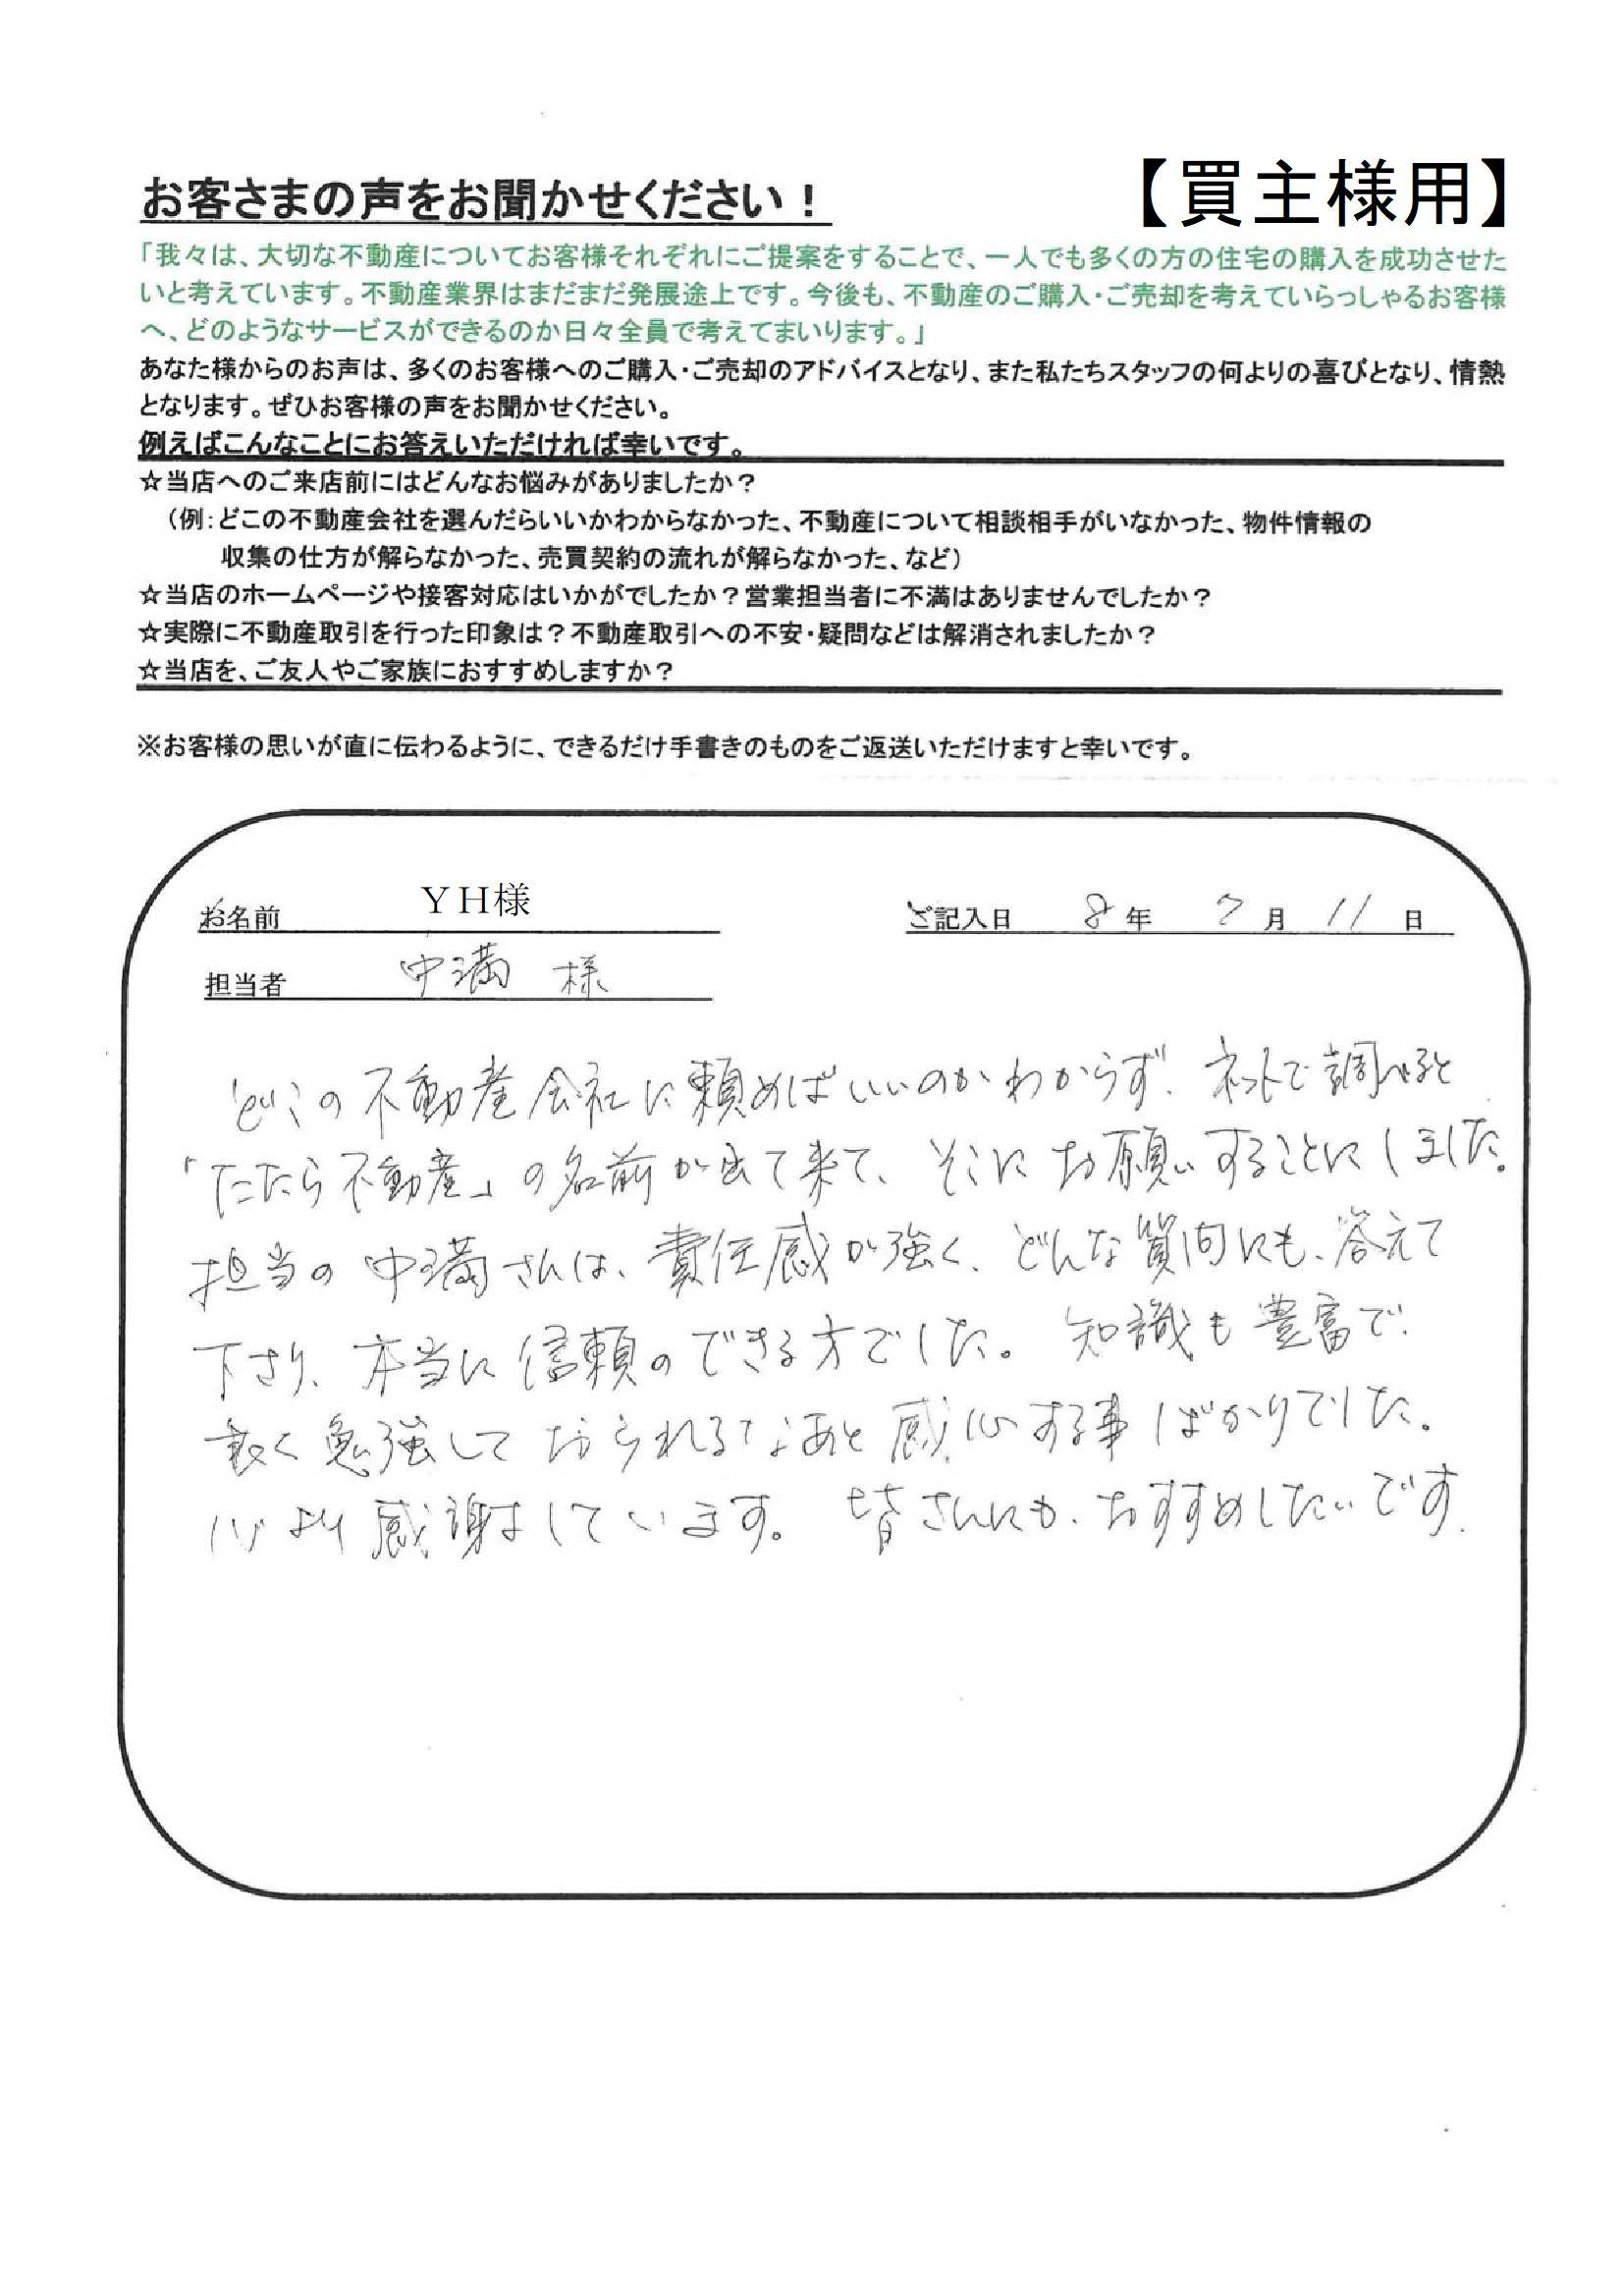 お客さまの声をお聞かせください！
【買主様用】
「我々は、大切な不動産についてお客様それぞれにご提案をすることで、一人でも多くの方の住宅の購入を成功させた
いと考えています。不動産業界はまだまだ発展途上です。今後も、不動産のご購入・ご売却を考えていらっしゃるお客様
へ、どのようなサービスができるのか日々全員で考えてまいります。」
あなた様からのお声は、多くのお客様へのご購入・ご売却のアドバイスとなり、また私たちスタッフの何よりの喜びとなり、情熱
となります。ぜひお客様の声をお聞かせください。
例えばこんなことにお答えいただければ幸いです。
☆当店へのご来店前にはどんなお悩みがありましたか？
（例：どこの不動産会社を選んだらいいかわからなかった、不動産について相談相手がいなかった、物件情報の
収集の仕方が解らなかった、売買契約の流れが解らなかった、など）
☆当店のホームページや接客対応はいかがでしたか？営業担当者に不満はありませんでしたか？
☆実際に不動産取引を行った印象は？不動産取引への不安・疑問などは解消されましたか？
☆当店を、ご友人やご家族におすすめしますか？
※お客様の思いが直に伝わるように、できるだけ手書きのものをご返送いただけますと幸いです。
お名前 ＹＨ様 ご記入日 8年 7月 11日
担当者 中満 様
どこの不動産会社に頼めばいいのかわからず、ネットで調べると
「たたら不動産」の名前が出て来て、そこにお願いすることにしました。
担当の中満さんは、責任感が強く、どんな質問にも、答えて
下さり、本当に信頼のできる方でした。知識も豊富で、
良く勉強しておられるなあと感心する事ばかりでした。
心より感謝しています。皆さんにも、おすすめしたいです.